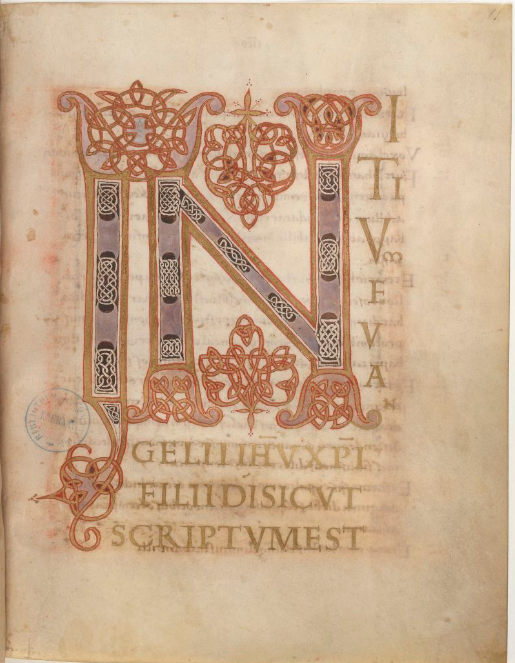 IN
I
TI
VM
E
V
A
N
GELII IH̅V XP̅I
FILII DI SICVT
SCRIPTVM EST